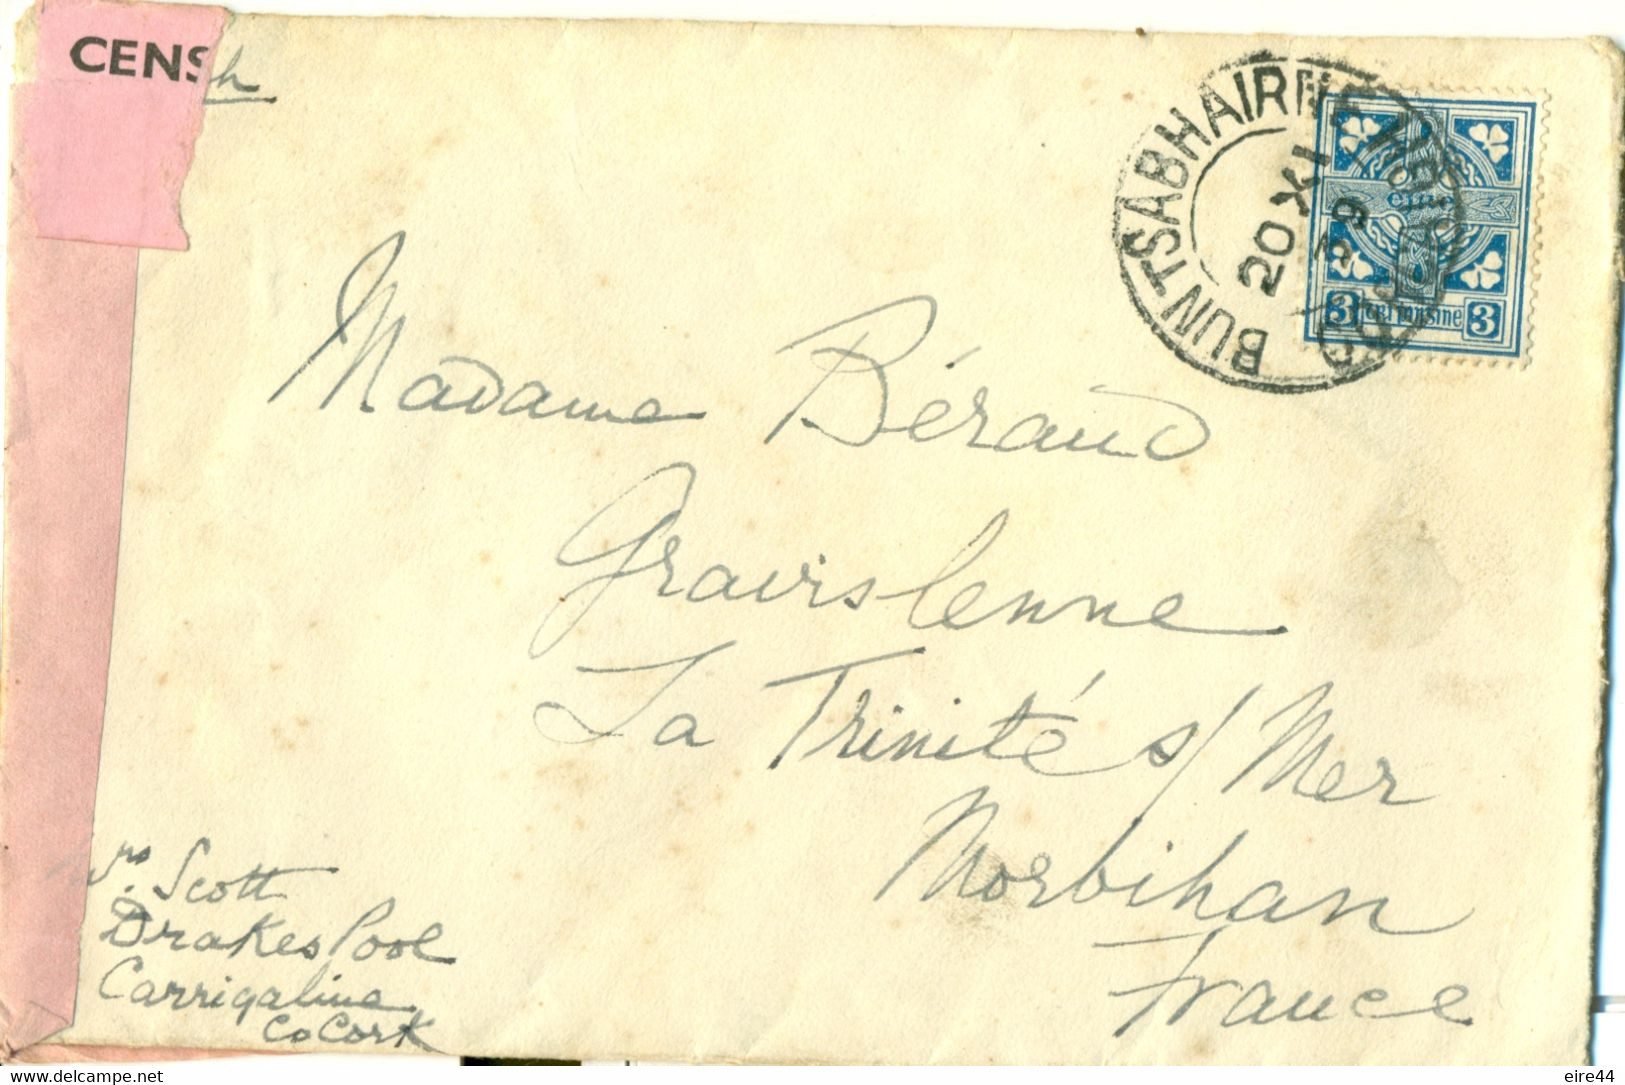 CENS
BUN TSABHAIRNE
20 XI
39
éire
3 3
Madame Béraud
La Trinité s/ Mer
Morbihan
France
Mrs Scott
Drakes Pool
Carrigaline
Co Cork
www.delcampe.net
eire44